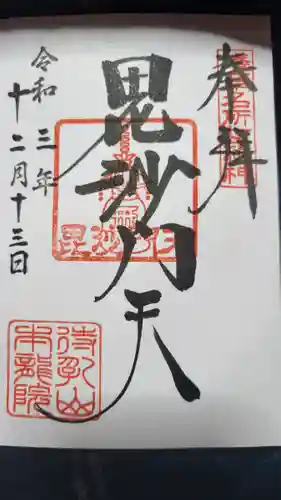 奉拝
毘沙門天
毘沙門天
令和三年
十二月十三日
待乳山
本龍院